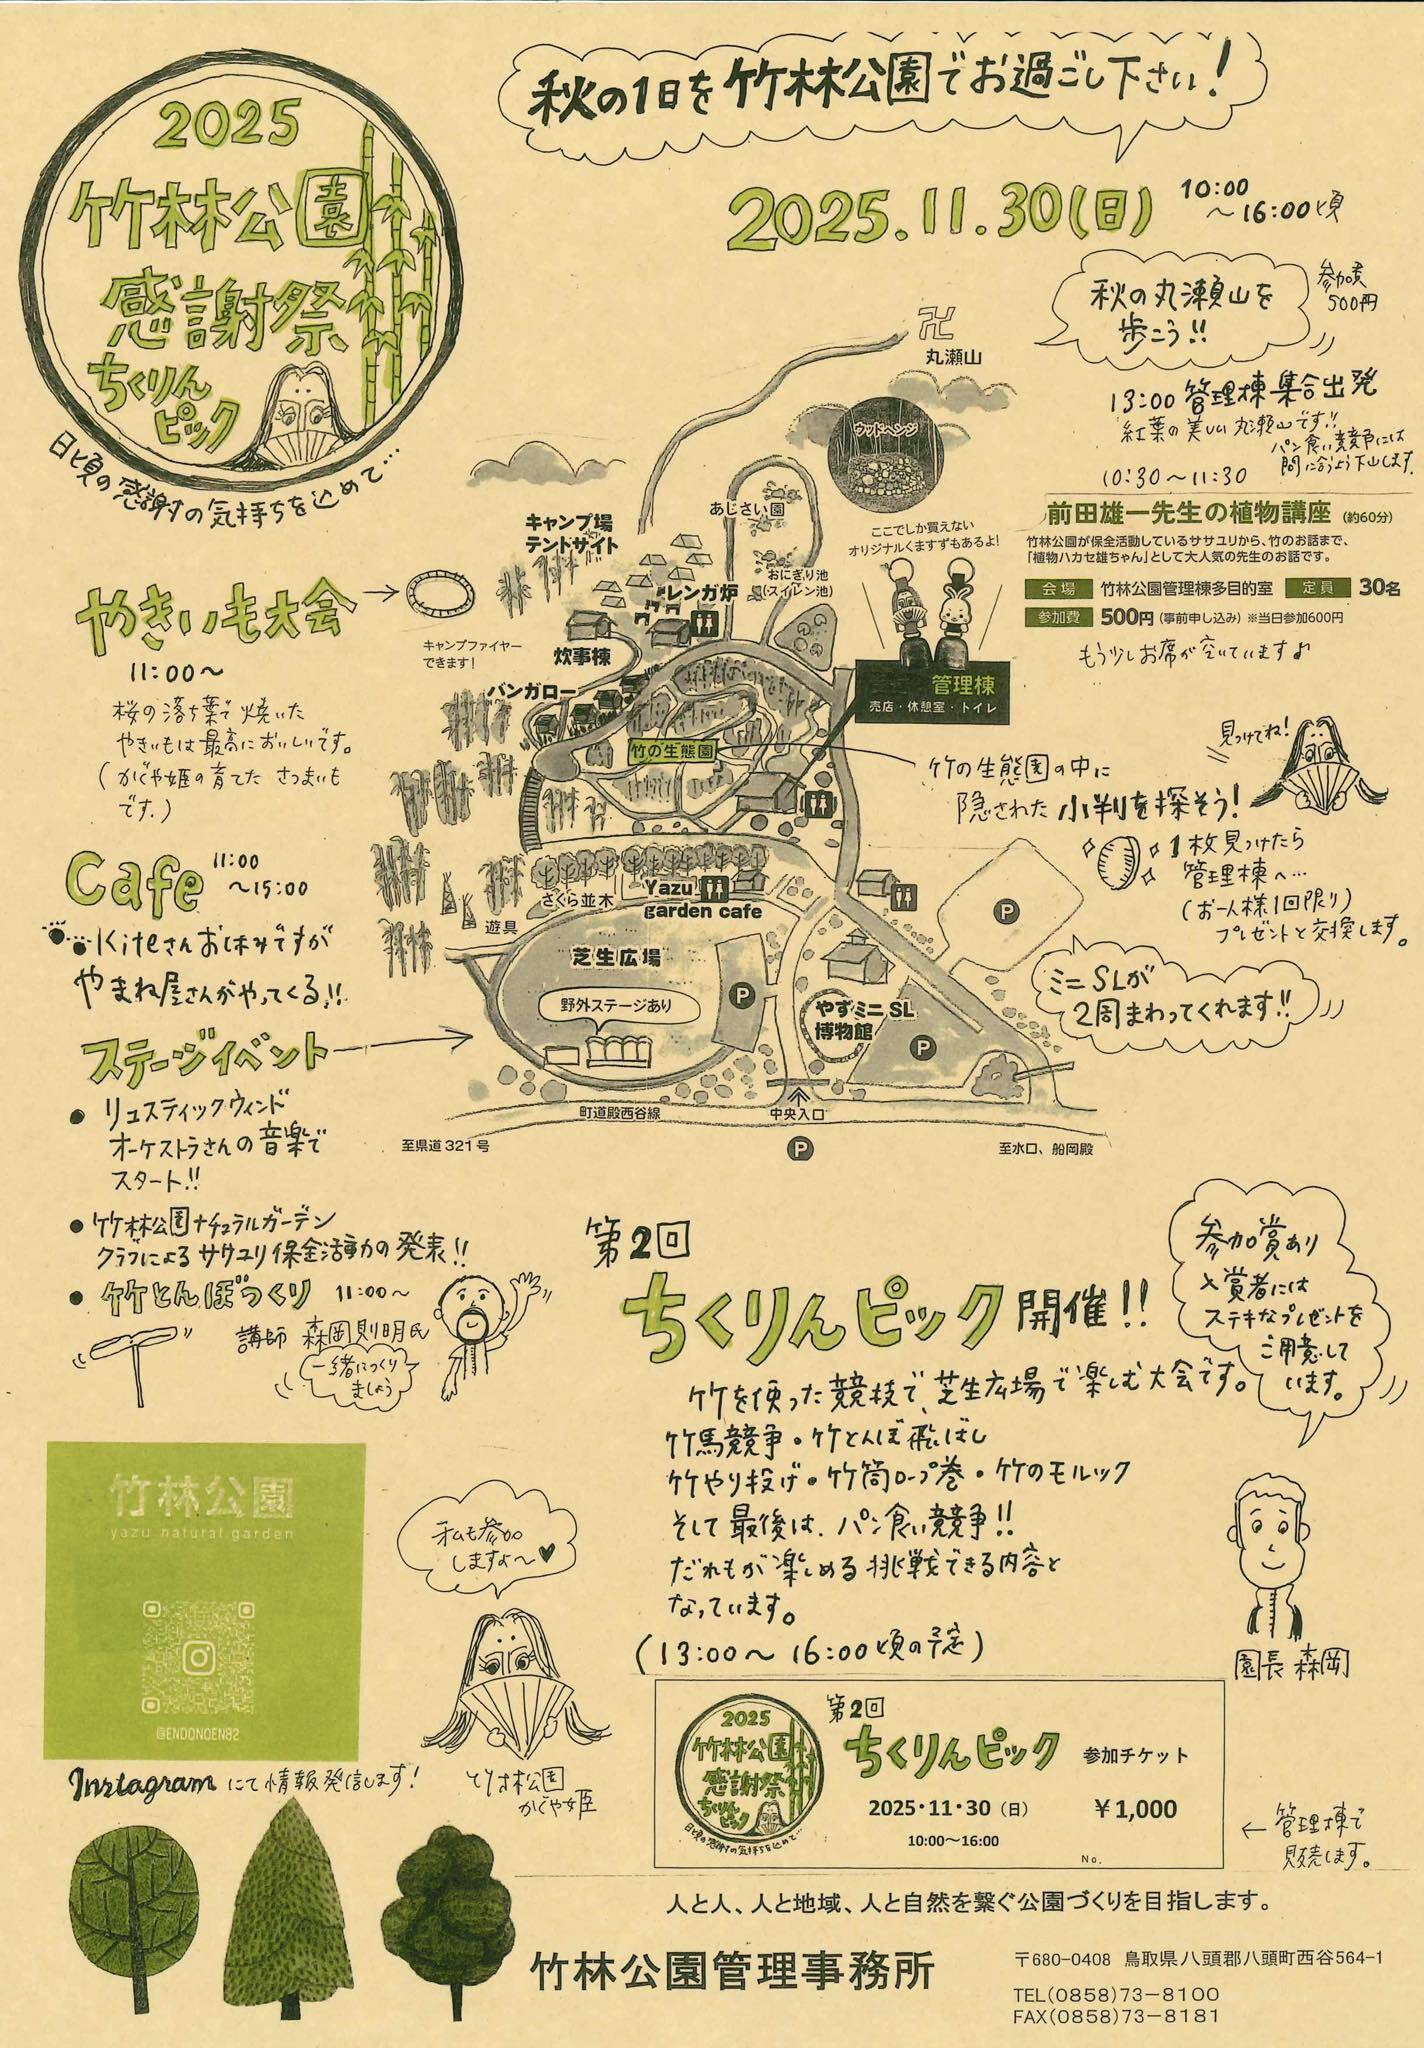 秋の1日を竹林公園でお過ごし下さい!
2025
竹林公園
感謝祭
ちくりん
ピック
日頃の感謝の気持ちを込めて…
2025.11.30(日)
10:00
〜16:00頃
秋の丸瀬山を
歩こう!!
参加費
500円
13:00 管理棟集合出発
紅葉の美しい丸瀬山です!!
パン食い競争には
間に合うよう下山します。
10:30〜11:30
前田雄一先生の植物講座(約60分)
竹林公園が保全活動しているササユリから、竹のお話まで、
「植物ハカセ雄ちゃん」として大人気の先生のお話です。
会場 竹林公園管理棟多目的室 定員 30名
参加費 500円(事前申し込み)※当日参加600円
もう少しお席が空いています♪
卍
丸瀬山
ウッドヘンジ
ここでしか買えない
オリジナルくますずもあるよ!
あじさい園
キャンプ場
テントサイト
おにぎり池
(スイレン池)
レンガ炉
炊事棟
キャンプファイヤー
できます!
バンガロー
管理棟
売店・休憩室・トイレ
竹の生態園
さくら並木
Yazu
garden cafe
遊具
芝生広場
野外ステージあり
P
P
P
やずミニSL
博物館
町道殿西谷線
中央入口
P
至県道321号
至水口、船岡殿
やきいも大会
11:00〜
桜の落ち葉で焼いた
やきいもは最高においしいです。
(かぐや姫の育てた さつまいも
です。)
Cafe 11:00
〜15:00
Kiteさんお休みですが
やまね屋さんがやってくる!!
見つけてね!
竹の生態園の中に
隠された小判を探そう!
1枚見つけたら
管理棟へ…
(お一人様1回限り)
プレゼントと交換します。
ミニSLが
2周まわってくれます!!
ステージイベント
● リュスティックウィンド
オーケストラさんの音楽で
スタート!!
● 竹林公園ナチュラルガーデン
クラブによるササユリ保全活動の発表!!
● 竹とんぼつくり 11:00〜
講師 森岡則明氏
一緒につくり
ましょう
第2回
ちくりんピック開催!!
参加賞あり
入賞者には
ステキなプレゼントを
ご用意して
います。
竹を使った競技で、芝生広場で楽しむ大会です。
竹馬競争・竹とんぼ飛ばし
竹やり投げ・竹筒ロープ巻・竹のモルック
そして最後は、パン食い競争!!
だれもが楽しめる挑戦できる内容と
なっています。
(13:00〜16:00頃の予定)
園長 森岡
竹林公園
yazu natural garden
@ENDONOEN82
Instagramにて情報発信します!
私も参加
しますよ〜♥
竹林公園
かぐや姫
2025
竹林公園
感謝祭
ちくりん
ピック
日頃の感謝の気持ちを込めて…
第2回
ちくりんピック 参加チケット
2025・11・30(日) ¥1,000
10:00〜16:00
No.
←管理棟で
販売します。
人と人、人と地域、人と自然を繋ぐ公園づくりを目指します。
竹林公園管理事務所
〒680-0408 鳥取県八頭郡八頭町西谷564-1
TEL(0858)73-8100
FAX(0858)73-8181